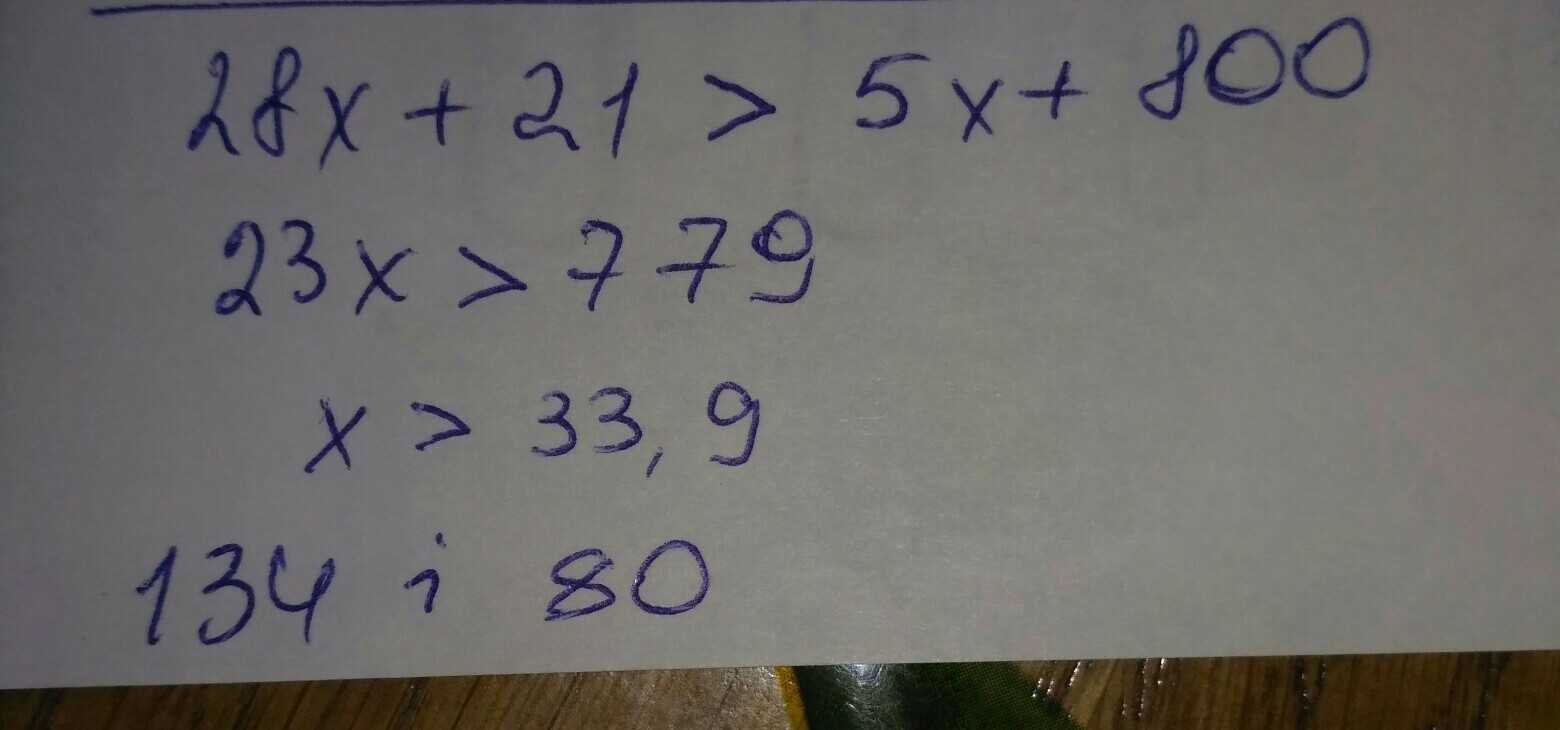 28x + 21 > 5x + 800
23x > 779
x > 33,9
134 i 80